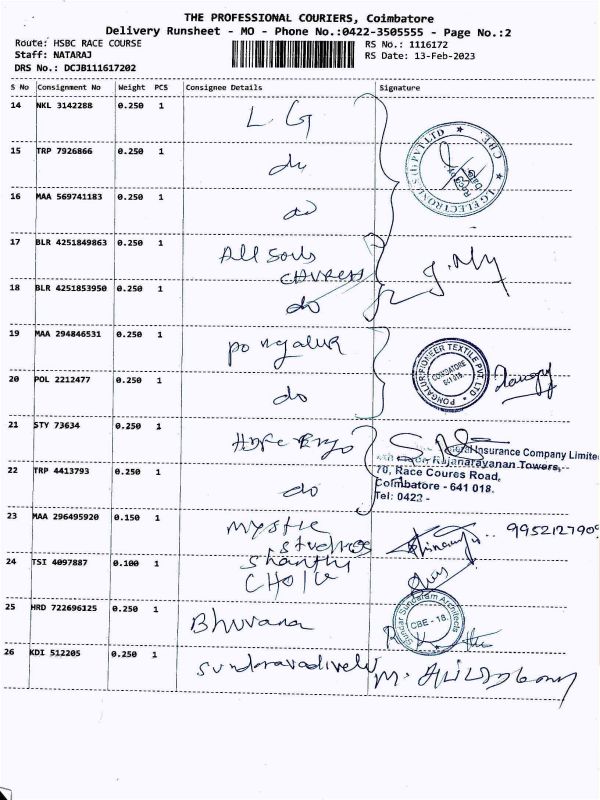 THE PROFESSIONAL COURIERS, Coimbatore
Delivery Runsheet - MO - Phone No.:0422-3505555 - Page No.:2
Route: HSBC RACE COURSE
RS No.: 1116172
Staff: NATARAJ
RS Date: 13-Feb-2023
DRS No.: DCJB111617202
S No Consignment No Weight PCS Consignee Details Signature
14 NKL 3142288 0.250 1 LG
15 TRP 7926866 0.250 1 do
16 MAA 569741183 0.250 1 do
LG ELECTRONICS (I) PVT LTD ★ CBE. ★
17 BLR 4251849863 0.250 1 All Souls
church
18 BLR 4251853950 0.250 1 do
19 MAA 294846531 0.250 1 pongalur
PONGALUR PIONEER TEXTILE PVT. LTD
COIMBATORE
641 018.
20 POL 2212477 0.250 1 do
21 STY 73634 0.250 1 Hdfc Ergo
General Insurance Company Limite
Rajanarayanan Towers,
70, Race Coures Road,
Coimbatore - 641 018.
Tel: 0422 -
22 TRP 4413793 0.250 1 do
23 MAA 296495920 0.150 1 mystic
studios
9952127909
24 TSI 4097887 0.100 1 shanthi
CHoice
25 HRD 722696125 0.250 1 Bhuvana
Sundar Sundaram Architects
CBE - 18.
26 KDI 512205 0.250 1 Sundaravadivelu